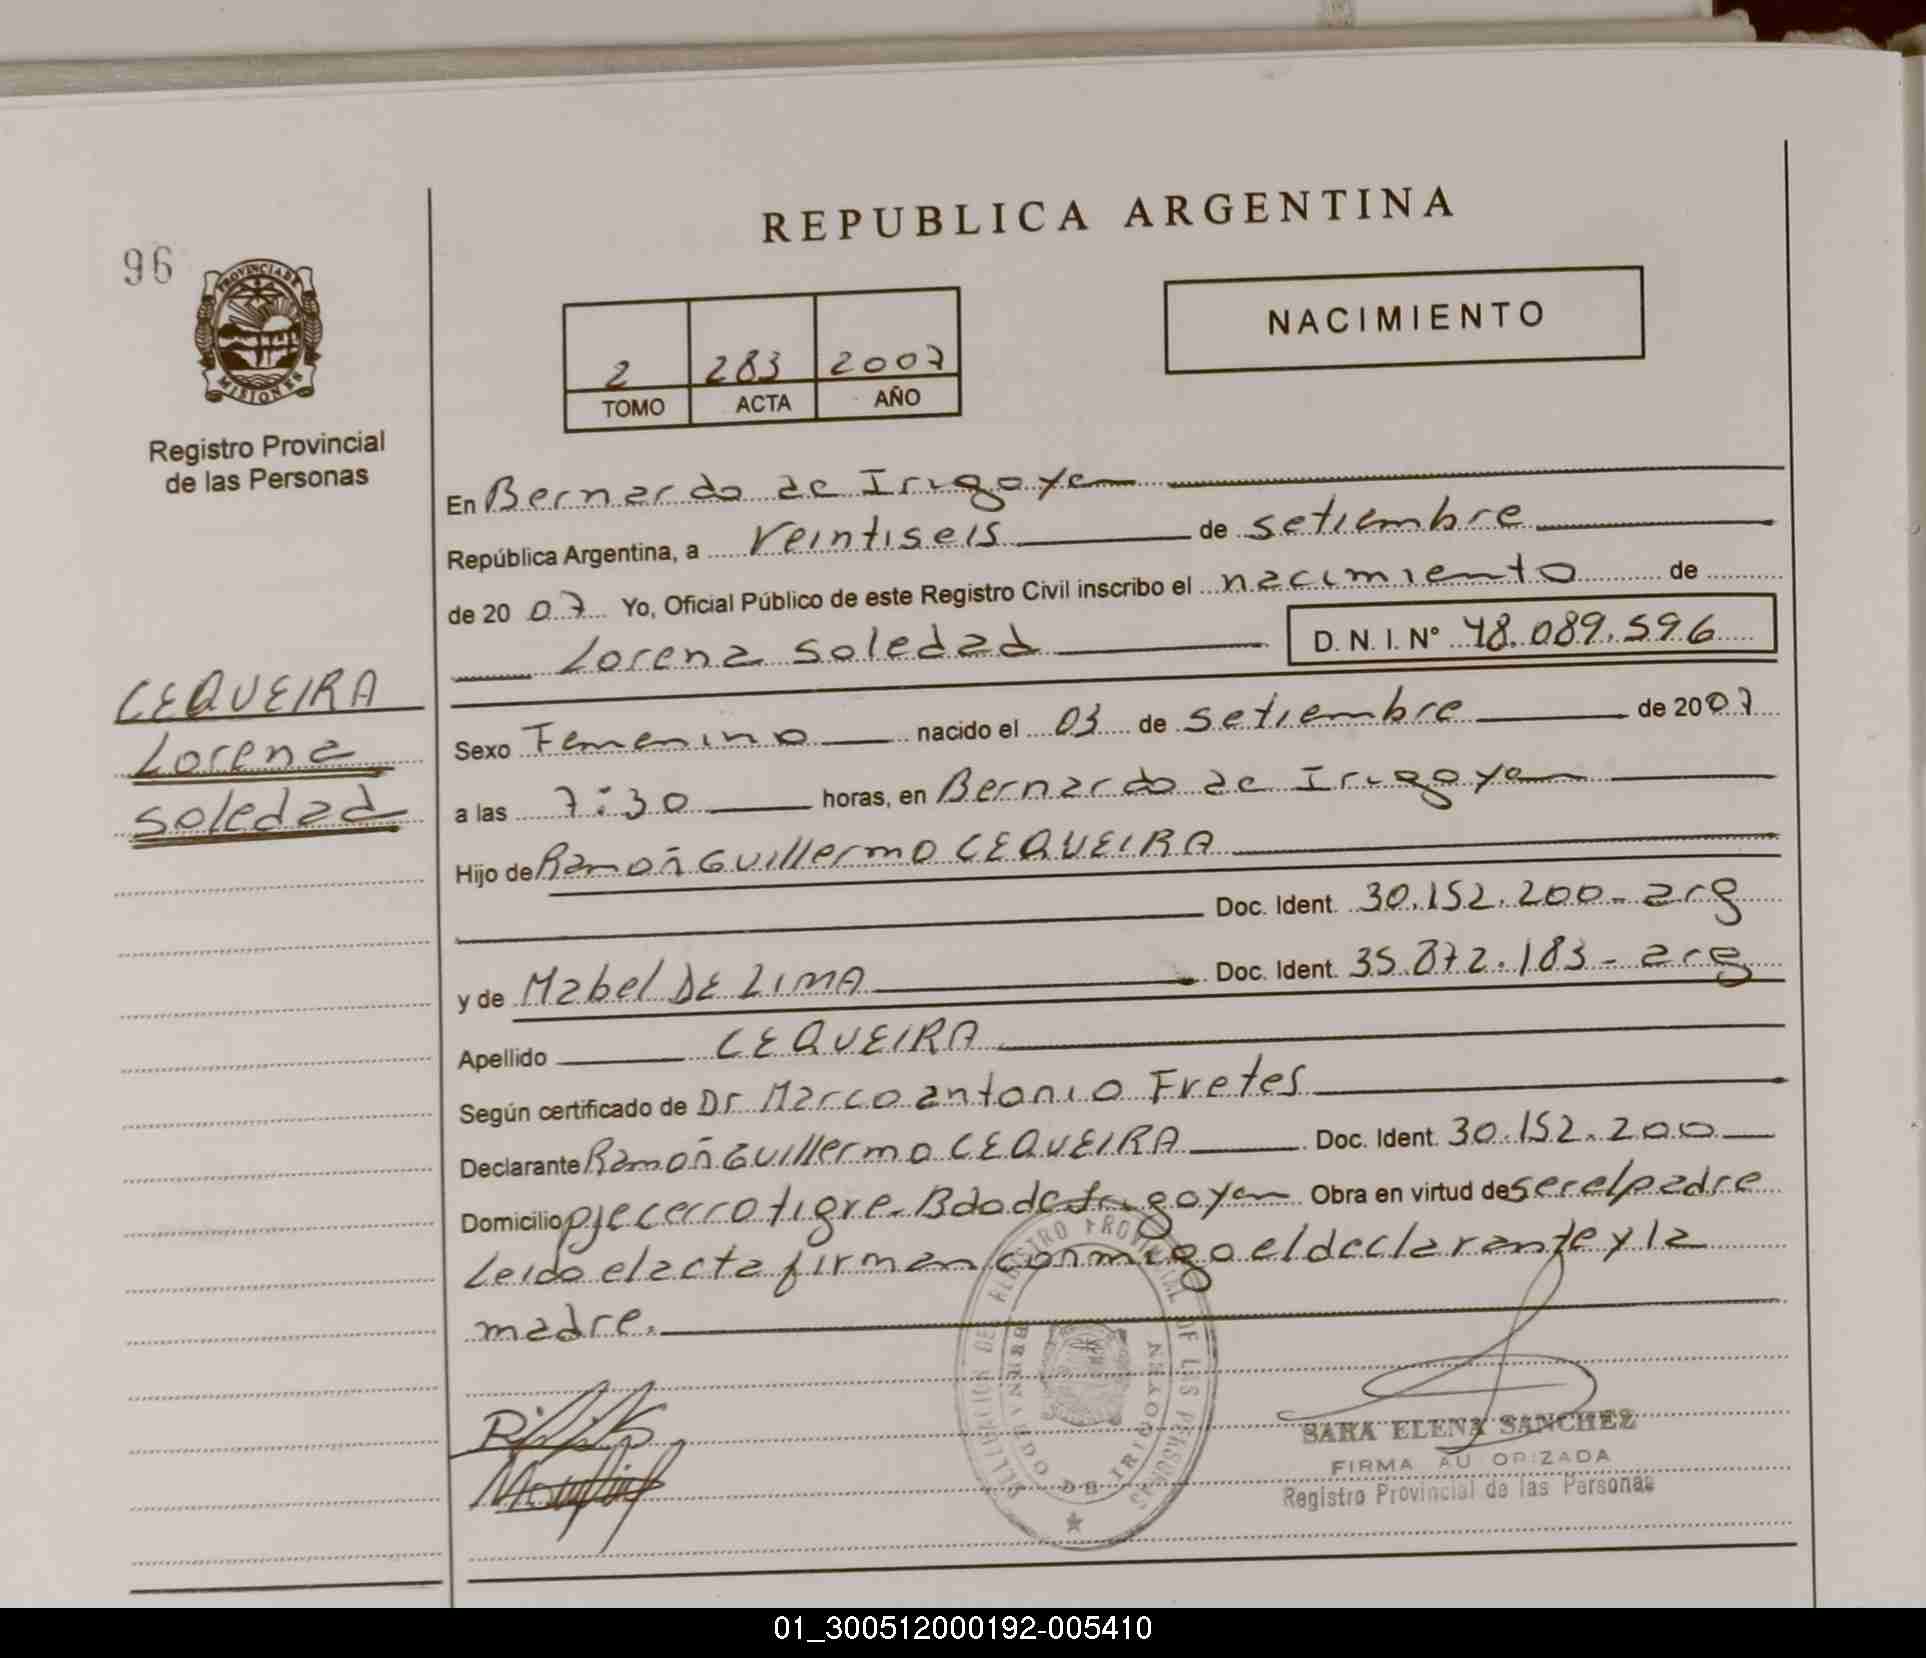 REPUBLICA ARGENTINA
96
PROVINCIA DE
MISIONES
Registro Provincial
de las Personas
NACIMIENTO
2 283 2007
TOMO ACTA AÑO
En Bernardo de Irigoyen
República Argentina, a Veintiseis de setiembre
de 20 07 Yo, Oficial Público de este Registro Civil inscribo el nacimiento de
Lorena Soledad D. N. I. Nº 48.089.596
CEQUEIRA
Lorena
Soledad
Sexo Femenino nacido el 03 de setiembre de 2007
a las 7:30 horas, en Bernardo de Irigoyen
Hijo de Ramón Guillermo CEQUEIRA
Doc. Ident. 30.152.200 - arg
y de Mabel DE LIMA Doc. Ident. 35.872.183 - arg
Apellido CEQUEIRA
Según certificado de Dr Marco antonio Fretes
Declarante Ramón Guillermo CEQUEIRA Doc. Ident. 30.152.200
Domicilio pje cerro tigre. Bdo de Irigoyen Obra en virtud de ser el padre
Leido el acta firman conmigo el declarante y la
madre.
REGISTRO PROVINCIAL DE LAS PERSONAS
BERNARDO DE IRIGOYEN
SARA ELENA SANCHEZ
FIRMA AUTORIZADA
Registro Provincial de las Personas
01_300512000192-005410